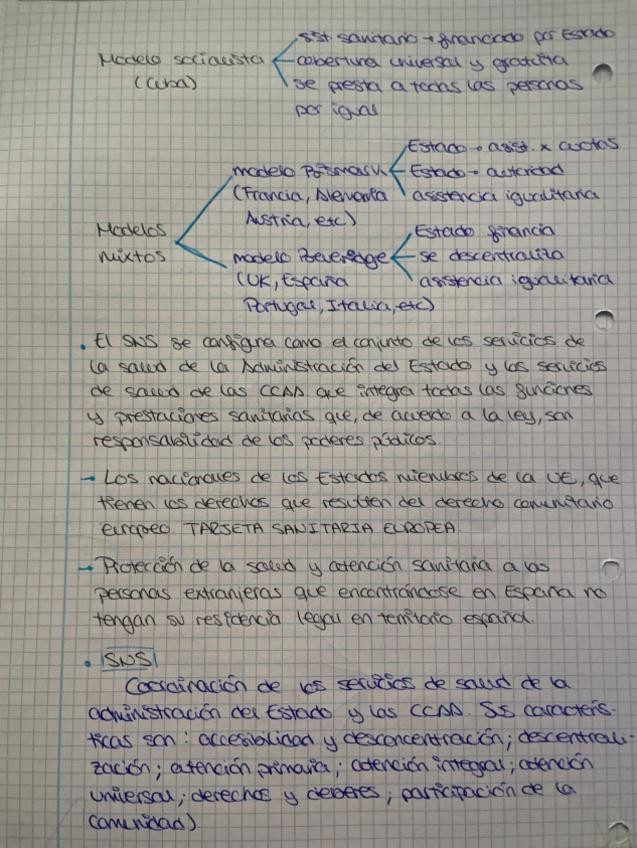 Modelo socialista
(Cuba)
sist. sanitario → financiado por Estado
cobertura universal y gratuita
se presta a todas las personas
por igual
Modelos
mixtos
modelo Bismark
(Francia, Alemania
Austria, etc)
Estado → asist. x cuotas
Estado → autoridad
asistencia igualitaria
modelo Beveridge
(UK, España
Portugal, Italia, etc)
Estado financia
se descentraliza
asistencia igualitaria
• El SNS se configura como el conjunto de los servicios de
la salud de la Administración del Estado y los servicios
de salud de las CCAA que integra todas las funciones
y prestaciones sanitarias que, de acuerdo a la ley, son
responsabilidad de los poderes públicos.
→ Los nacionales de los Estados miembros de la UE, que
tienen los derechos que resulten del derecho comunitario
europeo. TARJETA SANITARIA EUROPEA.
→ Protección de la salud y atención sanitaria a las
personas extranjeras que encontrándose en España no
tengan su residencia legal en territorio español.
• SNS
Coordinación de los servicios de salud de la
administración del Estado y las CCAA. Ss caracterís-
ticas son: accesibilidad y desconcentración; descentrali-
zación; atención primaria; atención integral; atención
universal; derechos y deberes; participación de la
comunidad)